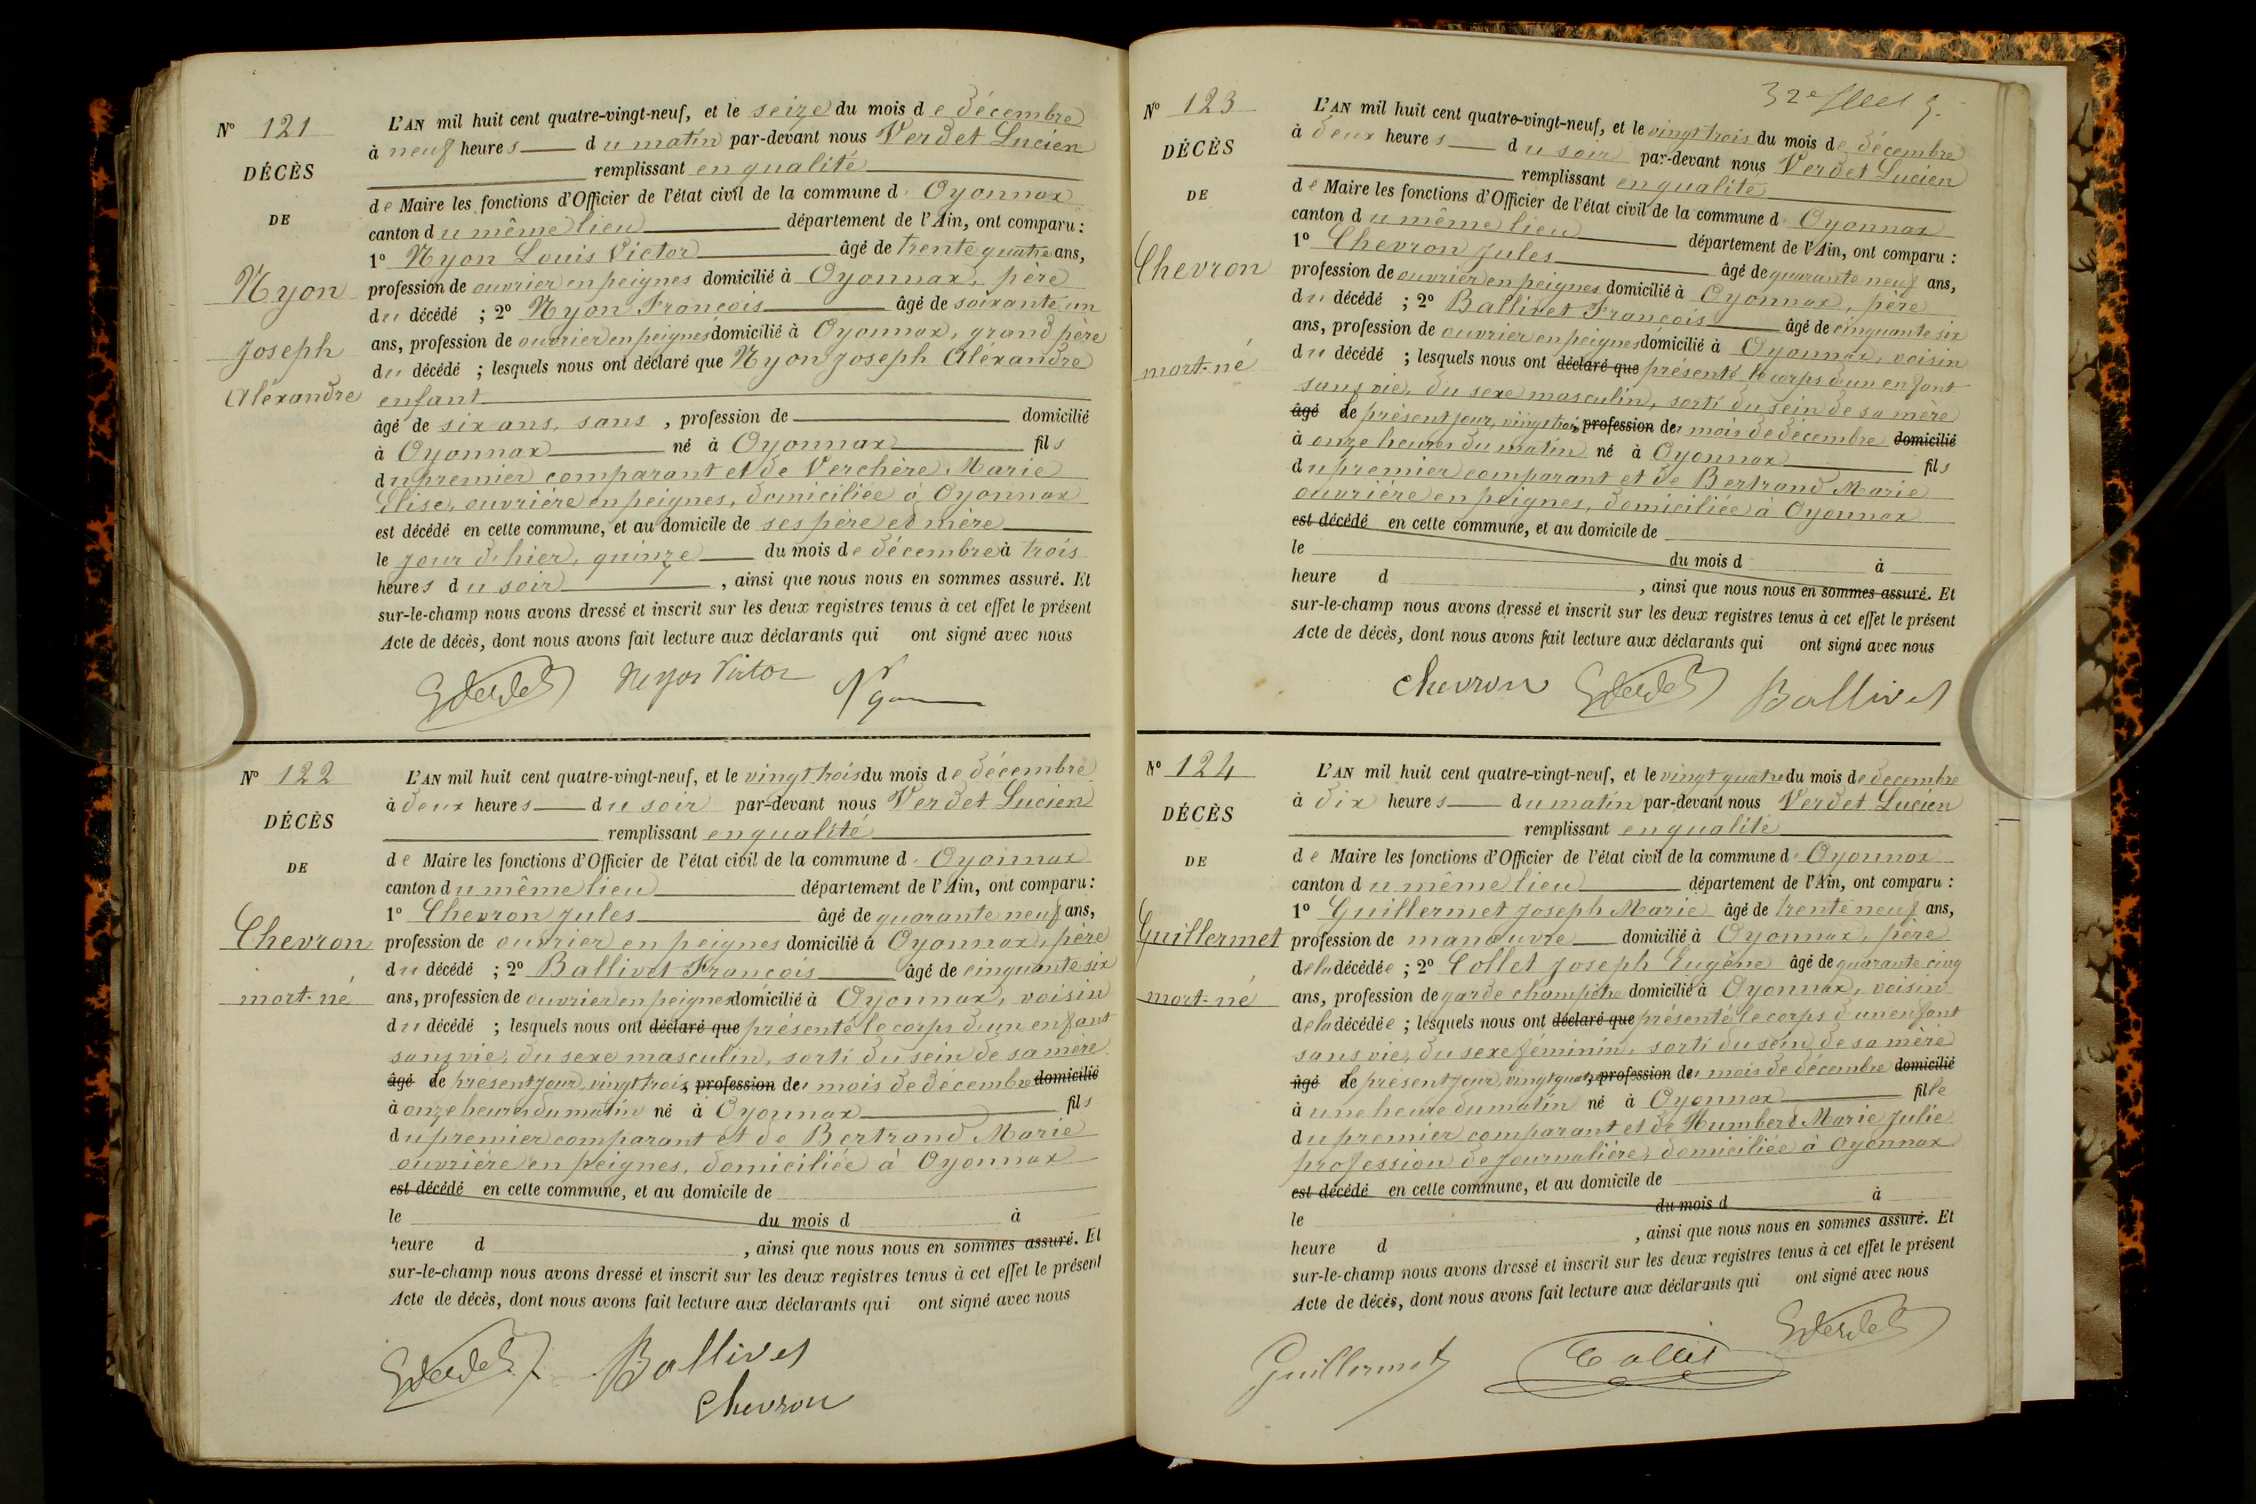 N° 121
DÉCÈS
DE
Nyon
Joseph
Aléxandre
L'AN mil huit cent quatre-vingt-neuf, et le seize du mois de décembre
à neuf heures du matin par-devant nous Verdet Lucien
remplissant en qualité
de Maire les fonctions d'Officier de l'état civil de la commune d' Oyonnax
canton du même lieu département de l'Ain, ont comparu :
1° Nyon Louis Victor âgé de trente quatre ans,
profession de ouvrier en peignes domicilié à Oyonnax, père
du décédé ; 2° Nyon François âgé de soixante un
ans, profession de ouvrier en peignes domicilié à Oyonnax, grand père
du décédé ; lesquels nous ont déclaré que Nyon Joseph Aléxandre
enfant
âgé de six ans, sans , profession de domicilié
à Oyonnax né à Oyonnax fils
du premier comparant et de Verchère Marie
Elise, ouvrière en peignes, domiciliée à Oyonnax
est décédé en cette commune, et au domicile de ses père et mère
le jour d'hier, quinze du mois de décembre à trois
heures du soir , ainsi que nous nous en sommes assuré. Et
sur-le-champ nous avons dressé et inscrit sur les deux registres tenus à cet effet le présent
Acte de décès, dont nous avons fait lecture aux déclarants qui ont signé avec nous
Verdet Nyon Victor Nyon
N° 122
DÉCÈS
DE
Chevron
mort-né
L'AN mil huit cent quatre-vingt-neuf, et le vingt trois du mois de décembre
à deux heures du soir par-devant nous Verdet Lucien
remplissant en qualité
de Maire les fonctions d'Officier de l'état civil de la commune d' Oyonnax
canton du même lieu département de l'Ain, ont comparu :
1° Chevron Jules âgé de quarante neuf ans,
profession de ouvrier en peignes domicilié à Oyonnax, père
du décédé ; 2° Ballivet François âgé de cinquante six
ans, profession de ouvrier en peignes domicilié à Oyonnax, voisin
du décédé ; lesquels nous ont déclaré que présenté le corps d'un enfant
sans vie, du sexe masculin, sorti du sein de sa mère
âgé de présent jour, vingt trois, profession de mois de décembre domicilié
à onze heures du matin né à Oyonnax fils
du premier comparant et de Bertrand Marie
ouvrière en peignes, domiciliée à Oyonnax
est décédé en cette commune, et au domicile de
le du mois d à
heure d , ainsi que nous nous en sommes assuré. Et
sur-le-champ nous avons dressé et inscrit sur les deux registres tenus à cet effet le présent
Acte de décès, dont nous avons fait lecture aux déclarants qui ont signé avec nous
Verdet Ballivet
Chevron
32e
N° 123
DÉCÈS
DE
Chevron
mort-né
L'AN mil huit cent quatre-vingt-neuf, et le vingt trois du mois de décembre
à deux heures du soir par-devant nous Verdet Lucien
remplissant en qualité
de Maire les fonctions d'Officier de l'état civil de la commune d' Oyonnax
canton du même lieu département de l'Ain, ont comparu :
1° Chevron Jules âgé de quarante neuf ans,
profession de ouvrier en peignes domicilié à Oyonnax, père
du décédé ; 2° Ballivet François âgé de cinquante six
ans, profession de ouvrier en peignes domicilié à Oyonnax, voisin
du décédé ; lesquels nous ont déclaré que présenté le corps d'un enfant
sans vie, du sexe masculin, sorti du sein de sa mère
âgé de présent jour, vingt trois, profession de mois de décembre domicilié
à onze heures du matin né à Oyonnax fils
du premier comparant et de Bertrand Marie
ouvrière en peignes, domiciliée à Oyonnax
est décédé en cette commune, et au domicile de
le du mois d à
heure d , ainsi que nous nous en sommes assuré. Et
sur-le-champ nous avons dressé et inscrit sur les deux registres tenus à cet effet le présent
Acte de décès, dont nous avons fait lecture aux déclarants qui ont signé avec nous
Chevron Verdet Ballivet
N° 124
DÉCÈS
DE
Guillermet
mort-né
L'AN mil huit cent quatre-vingt-neuf, et le vingt quatre du mois de décembre
à dix heures du matin par-devant nous Verdet Lucien
remplissant en qualité
de Maire les fonctions d'Officier de l'état civil de la commune d' Oyonnax
canton du même lieu département de l'Ain, ont comparu :
1° Guillermet Joseph Marie âgé de trente neuf ans,
profession de manœuvre domicilié à Oyonnax, père
de la décédée ; 2° Collet Joseph Eugène âgé de quarante cinq
ans, profession de garde champêtre domicilié à Oyonnax, voisin
de la décédée ; lesquels nous ont déclaré que présenté le corps d'un enfant
sans vie, du sexe féminin, sorti du sein de sa mère
âgé de présent jour, vingt quatre, profession de mois de décembre domicilié
à une heure du matin né à Oyonnax fille
du premier comparant et de Humbert Marie Julie
profession de journalière, domiciliée à Oyonnax
est décédé en cette commune, et au domicile de
le du mois d à
heure d , ainsi que nous nous en sommes assuré. Et
sur-le-champ nous avons dressé et inscrit sur les deux registres tenus à cet effet le présent
Acte de décès, dont nous avons fait lecture aux déclarants qui ont signé avec nous
Guillermet Collet Verdet